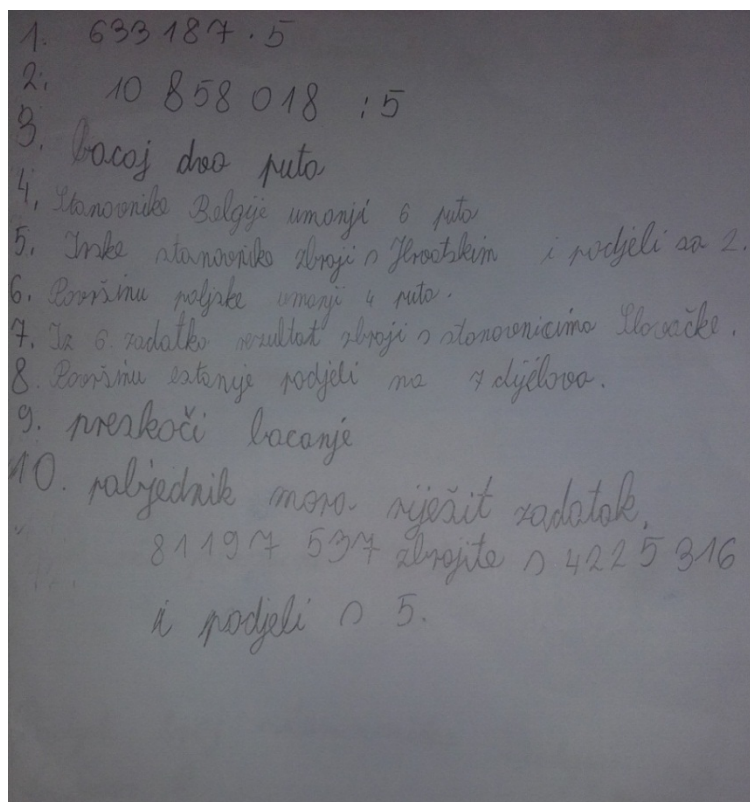 1. 633 187 · 5
2. 10 858 018 : 5
3. bacaj dva puta
4. Stanovnike Belgije umanji 6 puta
5. Irske stanovnike zbroji s Hrvatskim i podjeli sa 2.
6. Površinu poljske umanji 4 puta.
7. Iz 6. zadatka rezultat zbroji s stanovnicima Slovačke.
8. Površinu estonije podjeli na 7 dijelova.
9. preskoči bacanje
10. pobjednik mora riješit zadatak.
81197 537 zbrojite s 4225 316
i podjeli s 5.